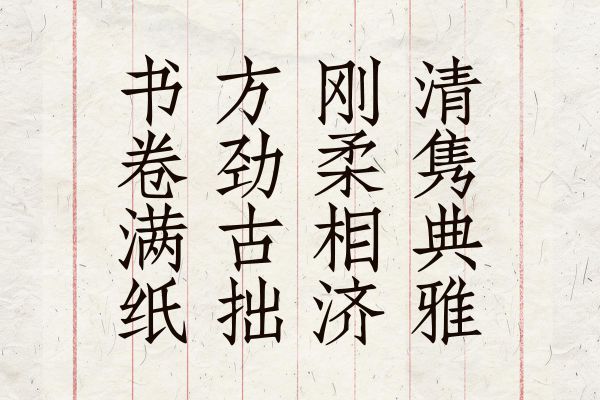 清隽典雅
刚柔相济
方劲古拙
书卷满纸